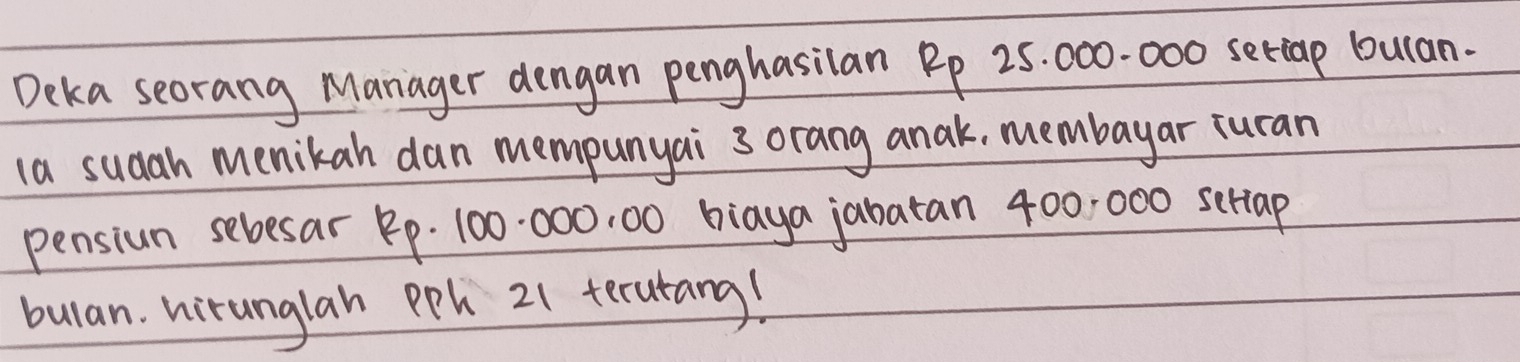 Deka seorang Manager dengan penghasilan Rp 25.000.000 setiap bulan.
ia sudah menikah dan mempunyai 3 orang anak. membayar iuran
pensiun sebesar Rp. 100.000,00 biaya jabatan 400.000 setiap
bulan. hitunglah PPh 21 terutang!